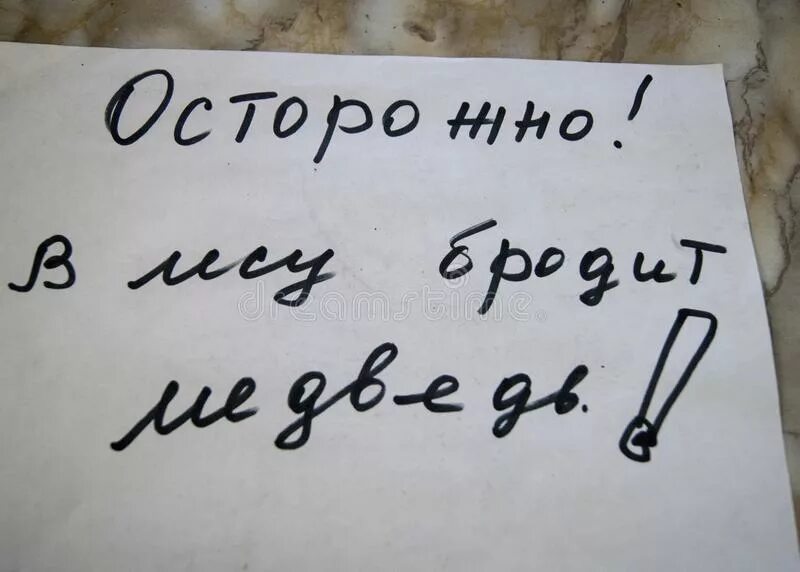 Осторожно!
в лесу бродит
медведь!
dreamstime.com